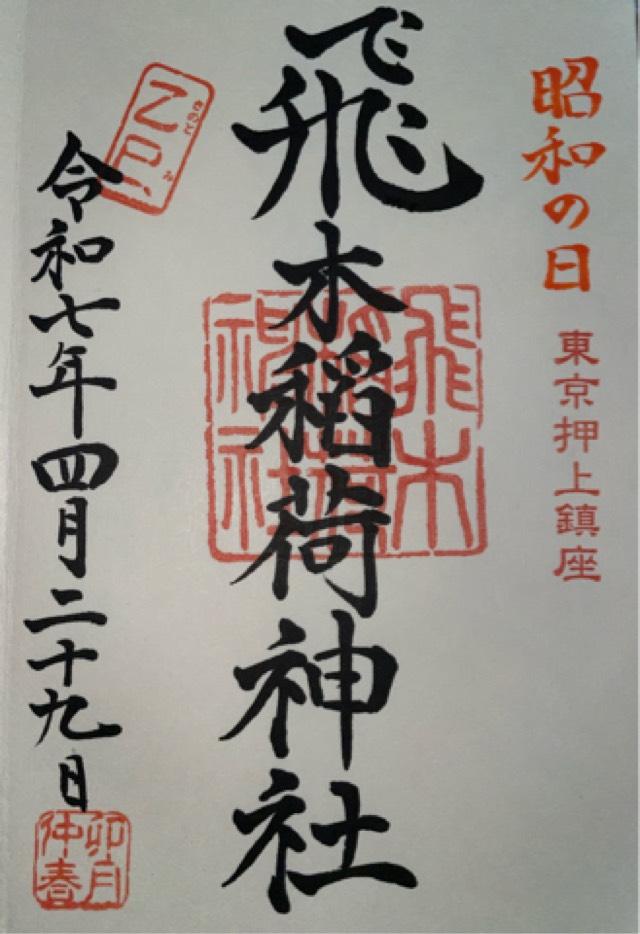 昭和の日
東京押上鎮座
飛木稲荷神社
飛木
稲荷
神社
乙巳
きのと み
令和七年四月二十九日
卯月
仲春